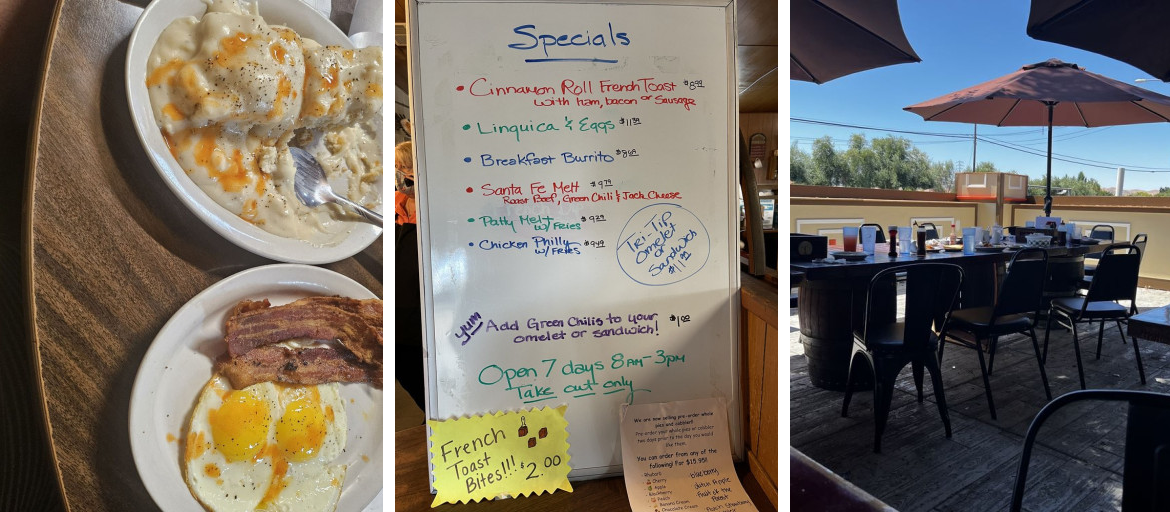 Specials
• Cinnamon Roll French Toast $8.99
with Ham, bacon or Sausage
• Linquica & Eggs $11.99
• Breakfast Burrito
• Santa Fe Melt $9.79
Roast Beef, Green Chili & Jack Cheese
• Patty Melt $9.29
w/ Fries
• Chicken Philly $9.49
w/ Fries
Tri-Tip
Omelet
or
Sandwich
$11.99
yum Add Green Chilis to your $1.00
omelet or sandwich!
Open 7 days 8AM-3PM
Take out only
French
Toast
Bites!!! $2.00
We are now selling pre-order whole
pies and cobbler!
Pre order your whole pies or cobbler
two days prior to the day you would
like them.
You can order from any of the
following for $15.95!!
Cherry
Apple
Blackberry
Peach
Banana Cream
Chocolate Cream
blueberry
dutch Apple
fruit of the
Forest